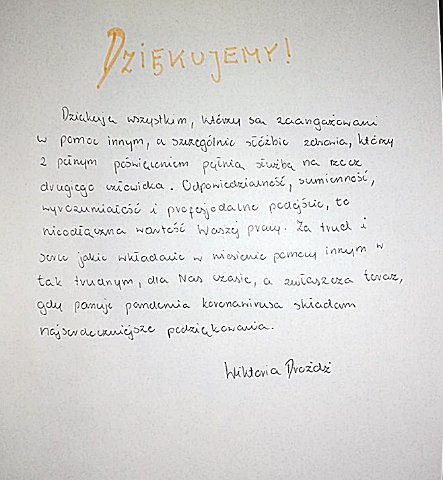 DZIĘKUJEMY!
Dziękuję wszystkim, którzy są zaangażowani
w pomoc innym, a szczególnie służbie zdrowia, którzy
z pełnym poświęceniem pełnią służbę na rzecz
drugiego człowieka. Odpowiedzialność, sumienność,
wyrozumiałość i profesjonalne podejście, to
nieodłączna wartość Waszej pracy. Za trud i
serce jakie wkładacie w niesienie pomocy innym w
tak trudnym, dla Nas czasie, a zwłaszcza teraz,
gdy panuje pandemia koronawirusa składam
najserdeczniejsze podziękowania.
Wiktoria Drożdż